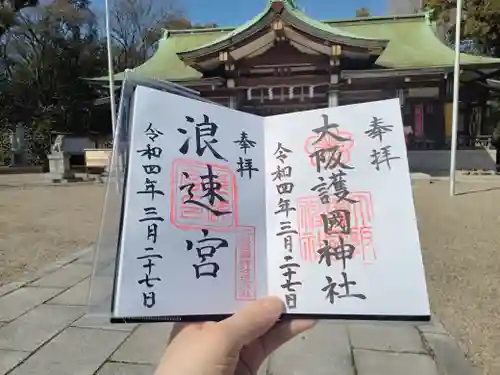 奉拝
大阪護國神社
令和四年三月二十二日
奉拝
浪速宮
令和四年三月二十七日